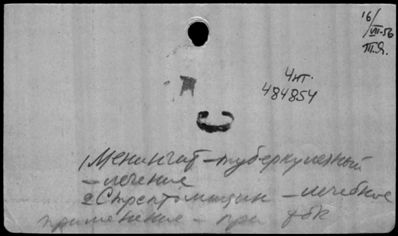 16/
VII-56
Т.Я.
Чит.
484854
1) Менингит - туберкулезный
- лечение
2) Стрептомицин - лечебное
применение - при tbk